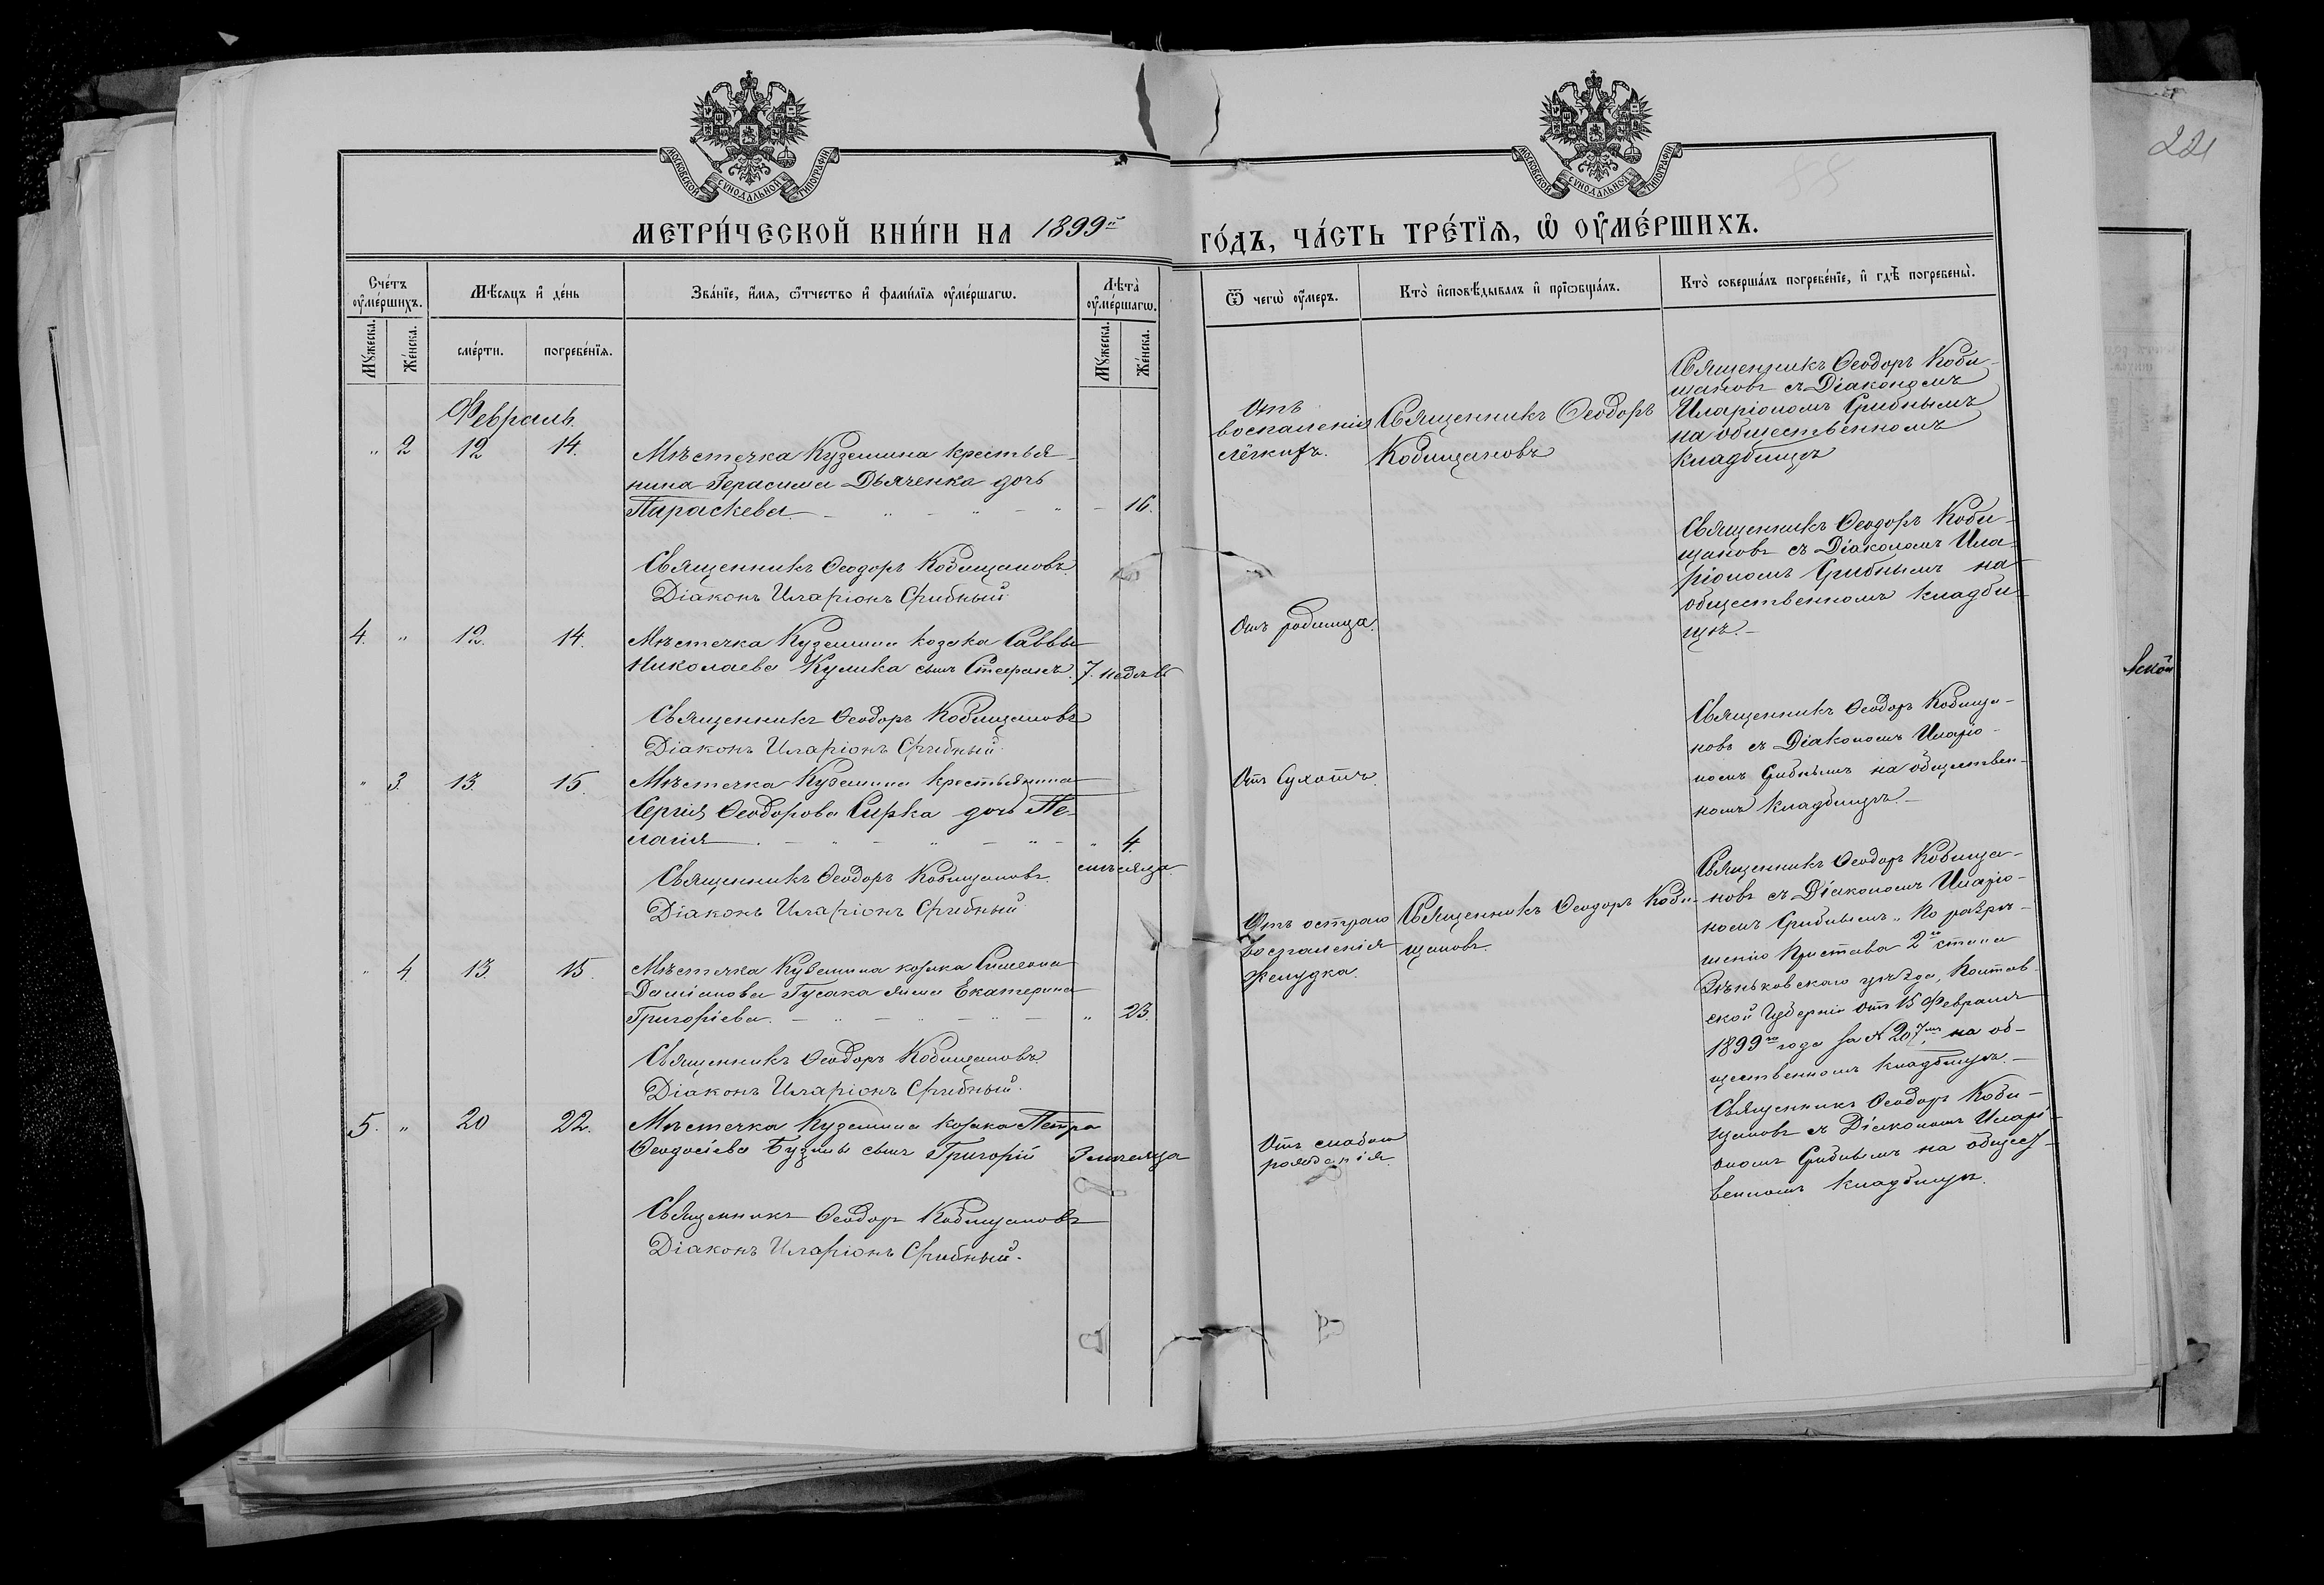 МОСКОВСКОЙ СѴНОДАЛЬНОЙ ТИПОГРАФІИ
МОСКОВСКОЙ СѴНОДАЛЬНОЙ ТИПОГРАФІИ
221
МЕТРИ́ЧЕСКОЙ КНИ́ГИ НА 1899й ГО́ДЪ, ЧА́СТЬ ТРЕ́ТЇѦ, Ѡ҆ ОУ҆МЕ́РШИХЪ.
Сче́тъ оу҆ме́ршихъ.
Мѣ́сяцъ и҆ де́нь
Зва́нїе, и҆́мѧ, ѻ҆́тчество и҆ фами́лїѧ оу҆ме́ршагѡ.
Лѣта̀ оу҆ме́ршагѡ.
Ѿ чегѡ̀ оу҆́меръ.
Кто̀ и҆сповѣ́дывалъ и҆ прїѡбща́лъ.
Кто̀ соверша́лъ погребе́нїе, и҆ гдѣ̀ погребены̀.
Мꙋ́жеска.
Же́нска.
сме́рти.
погребе́нїѧ.
Мꙋ́жеска.
Же́нска.
Февраль.
" 2 12 14.
Мѣстечка Куземина крестья-
нина Герасима Дьяченка дочь
Параскева. – " – " – " – 16.
Священникъ Ѳеодоръ Кобищановъ
Діаконъ Иларіонъ Срибный
Отъ
воспаленія
лёгкихъ.
Священникъ Ѳеодоръ
Кобищановъ
Священникъ Ѳеодоръ Коби-
щановъ съ Діакономъ
Иларіономъ Срибнымъ
на общественномъ
кладбищѣ
4. " 12. 14.
Мѣстечка Куземина козака Саввы
Николаева Кулика сынъ Стефанъ. 7. недѣль
Священникъ Ѳеодоръ Кобищановъ
Діаконъ Иларіонъ Срибный.
Отъ родимца.
Священникъ Ѳеодоръ Коби-
щановъ съ Діакономъ Ила-
ріономъ Срибнымъ на
общественномъ кладби-
щѣ. –
" 3. 13. 15.
Мѣстечка Куземина крестьянина
Сергія Ѳеодорова Сирка дочь Пе-
лагія. – " – " – " – " 4.
мѣсяца.
Священникъ Ѳеодоръ Кобищановъ.
Діаконъ Иларіонъ Срибный
Отъ Сухотъ.
Священникъ Ѳеодоръ Кобища-
новъ съ Діакономъ Иларіо-
номъ Срибнымъ на обществен-
номъ кладбищѣ. –
" 4. 13. 15.
Мѣстечка Куземина козака Симеона
Даміанова Гусака жина Екатерина
Григоріева. – " – " – " – " 23.
Священникъ Ѳеодоръ Кобищановъ
Діаконъ Иларіонъ Срибный.
Отъ остраго
воспаленія
желудка.
Священникъ Ѳеодоръ Коби-
щановъ.
Священникъ Ѳеодоръ Кобища-
новъ съ Діакономъ Иларіо-
номъ Срибнымъ. По разрѣ-
шенію Пристава 2го стана
Зѣньковскаго уѣзда, Полтав-
ской Губерніи отъ 15 Февраля
1899го года за № 207мъ, на об-
щественномъ кладбищѣ. –
5. " 20 22.
Мѣстечка Куземина козака Петра
Ѳеодосіева Бузилы сынъ Григорій 3 мѣсяца
Священникъ Ѳеодоръ Кобищановъ
Діаконъ Иларіонъ Срибный.
Отъ слабаго
рожденія.
Священникъ Ѳеодоръ Коби-
щановъ съ Діакономъ Иларі-
ономъ Срибнымъ на общест-
венномъ кладбищѣ.